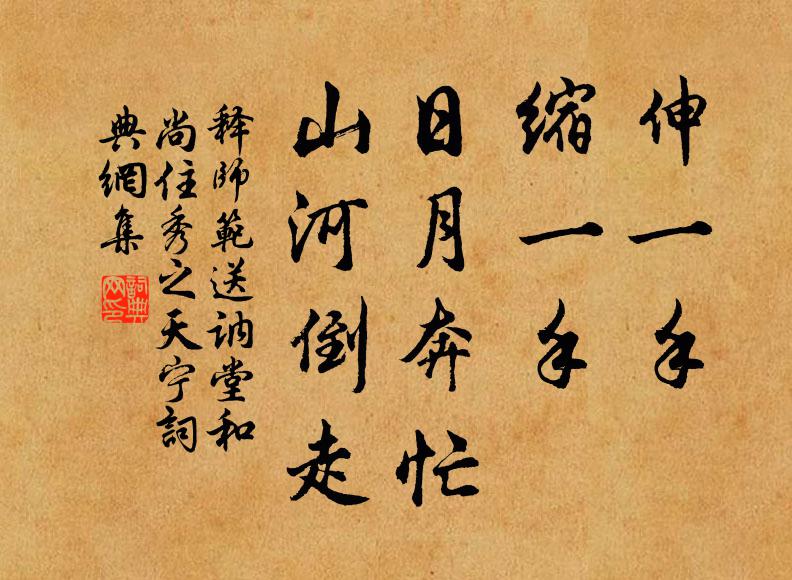 伸一手
縮一手
日月奔忙
山河倒走
释師範送訥堂和
尚住秀之天宁詞
典網集
詞典
网印